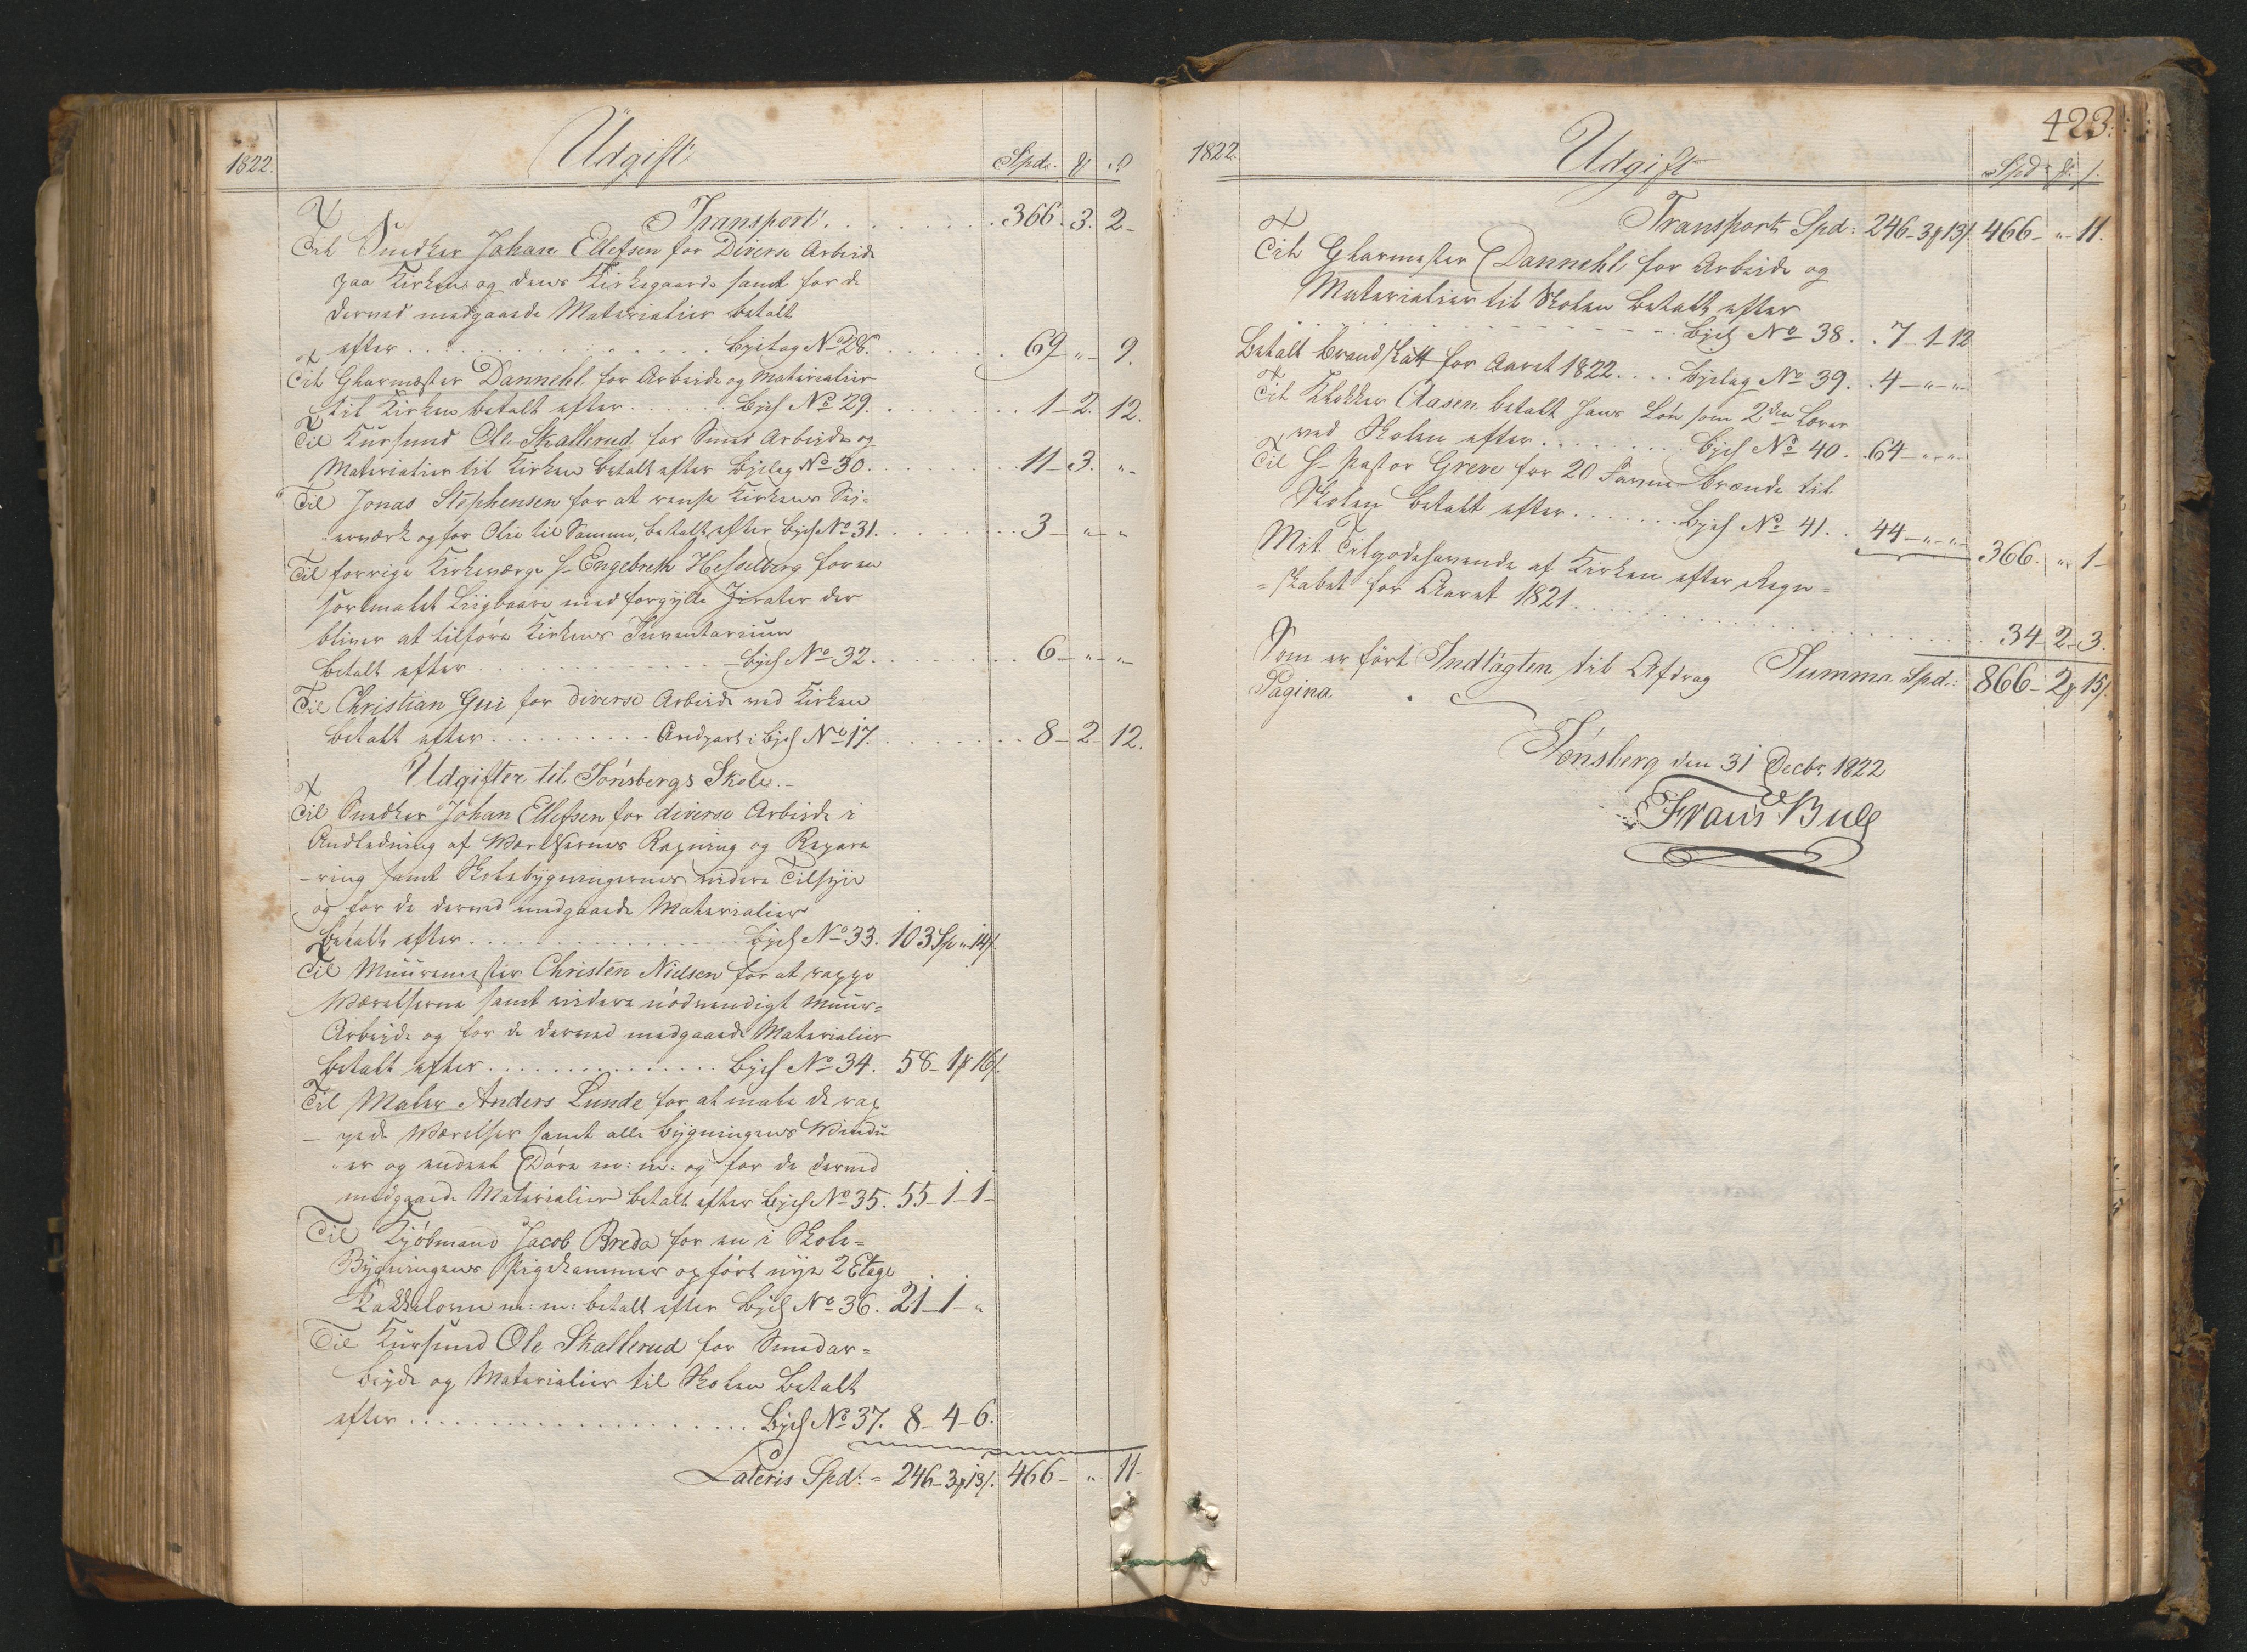 1822. Udgift Spd. ß
Transport . . . . . . . . 366. 3. 2-
Til Snedker Johan Ellefsen for Diverse Arbeide
paa Kirken og dens Kirkegaard samt for de
dermed medgaaede Materialier betalt
efter . . . . . . . . Byelag No 28. . . . . . 69 - " - 9.
Til Glarmester Dannehl for Arbeide og Materialier
til Kirken betalt efter . . . . . Byel No 29. . . . . . 1 - 2. 12.
Til Kursmed Ole Skallerud for Smed Arbeide og
Materialier til Kirken betalt efter Byelag No 30. . . . . . 11 - 3. "-
Til Jonas Stephensen for at rense Kirkens Sei=
erværk og for Olie til Samme, betalt efter Byel No 31. . . . . . 3 - "- "
Til forrige Kirkeværge Hr Engebreth Hesselberg for en
sortmalet Liigbaare med forgylte Zirater der
bliver at tilföre Kirkens Inventarium
betalt efter . . . . . . . . Byel No 32. . . . . . 6 - " - "-
Til Christian Gui for diverse Arbeide ved Kirken
betalt efter . . . . . . . Andpart i Byel No 17. . . . . . 8 - 2 - 12.
Udgifter til Tönsbergs Skole.-
Til Snedker Johan Ellefsen for diverse Arbeide i
Andledning af Værelsernes Rapning og Repare
-ring samt Skolebygningernes videre Tilsyn
og for de dermed medgaaede Materialier
betalt efter . . . . . . . . Byel No 33. 103 Sp " 14 ß
Til Muurmester Christen Nielsen for at rappe
Værelserne samt videre nödvendigt Muur=
Arbeide og for de dermed medgaaede Materialier
betalt efter . . . . . . . . Byel No 34. 58 - 1 16 ß
Til Maler Anders Lunde for at male de rap
- pede Værelser samt alle Bygningens Vindu
"er og endeel Döre m: m: og for de dermed
medgaaede Materialier betalt efter Byel No 35. 55 - 1 - 1 -
Til Kjöbmand Jacob Bredo for en i Skole=
Bygningens Pigekammer opfört nye 2 Etage
Kakkelovn m: m: betalt efter Byel No 36. 21 - 1 - "
Til Kursmed Ole Skallerud for Smedar=
beyde og Materialier til Skolen betalt
efter . . . . . . . . Byel No 37. 8 - 4 - 6.
Lateris Spd: = 246 - 3 13 ß. 466 - " - 11 -
423.
1822. Udgift Spd ß.
Transport Spd: 246 - 3 13 ß. 466 - " - 11.
Til Glarmester Dannehl for Arbeide og
Materialier til Skolen betalt efter
. . . . . . . . Byel No 38. . 7 - 1 - 12
Betalt brandskatt for Aaret 1822. . . . Byelag No 39. . 4 - " - "-
Til Klokker Aasen betalt hans Lön som 2den Lærer
ved Skolen efter . . . . . . Byel No 40. . 64 - " - "-
Til Hr Pastor Greve for 20 Favne Brænde til
Skolen betalt efter . . . . . . Byel No 41. . 44 - " - "- 366. " 1 -
Mit Tilgodehavende af Kirken efter Regn=
=skabet for Aaret 1821 . . . . . . . . 34 - 2 - 3.
Som er fört Indtægten til Afdrag Summa Spd.: 866 - 2 15 ß.
Pagina.
Tönsberg den 31 Decbr 1822
Frans Bull